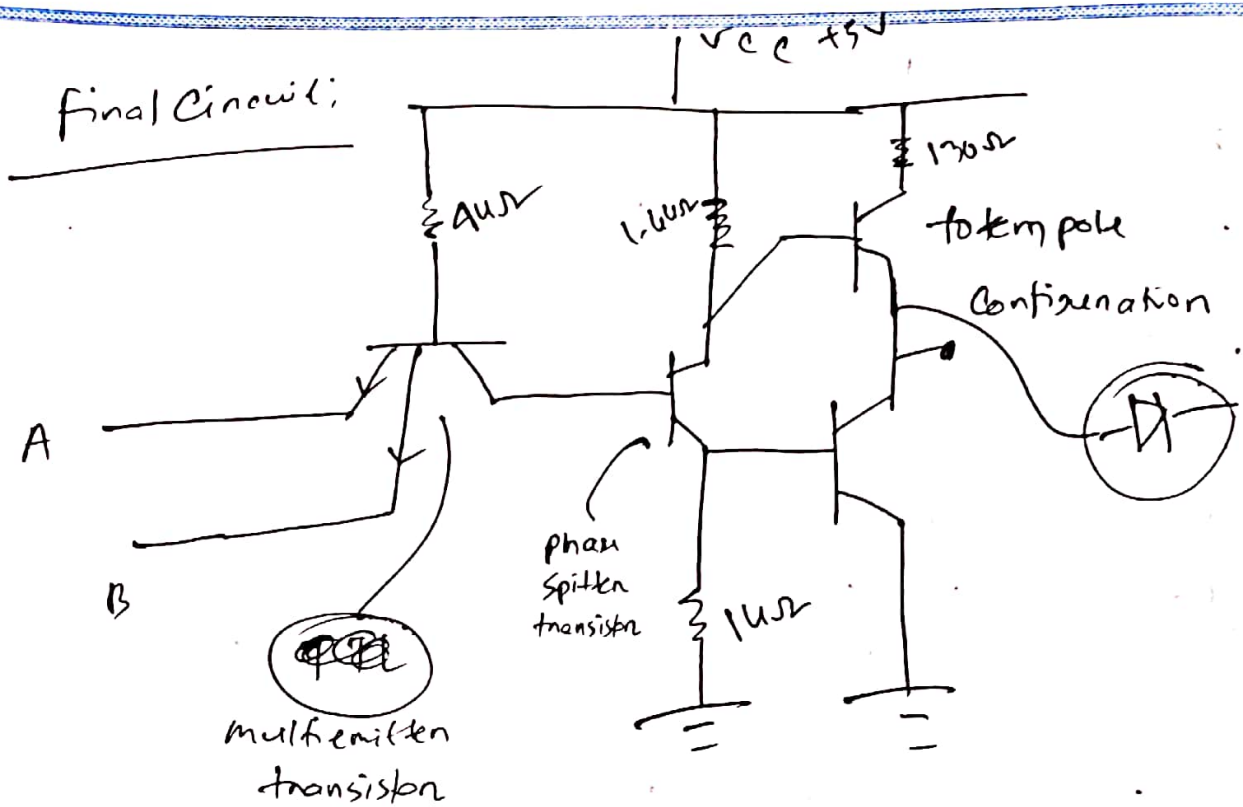 Vcc +5V
Final Circuit:
130Ω
4kΩ
1.6kΩ
totem pole
Configuration
A
phase
spitter
transistor
B
1kΩ
multiemitter
transistor